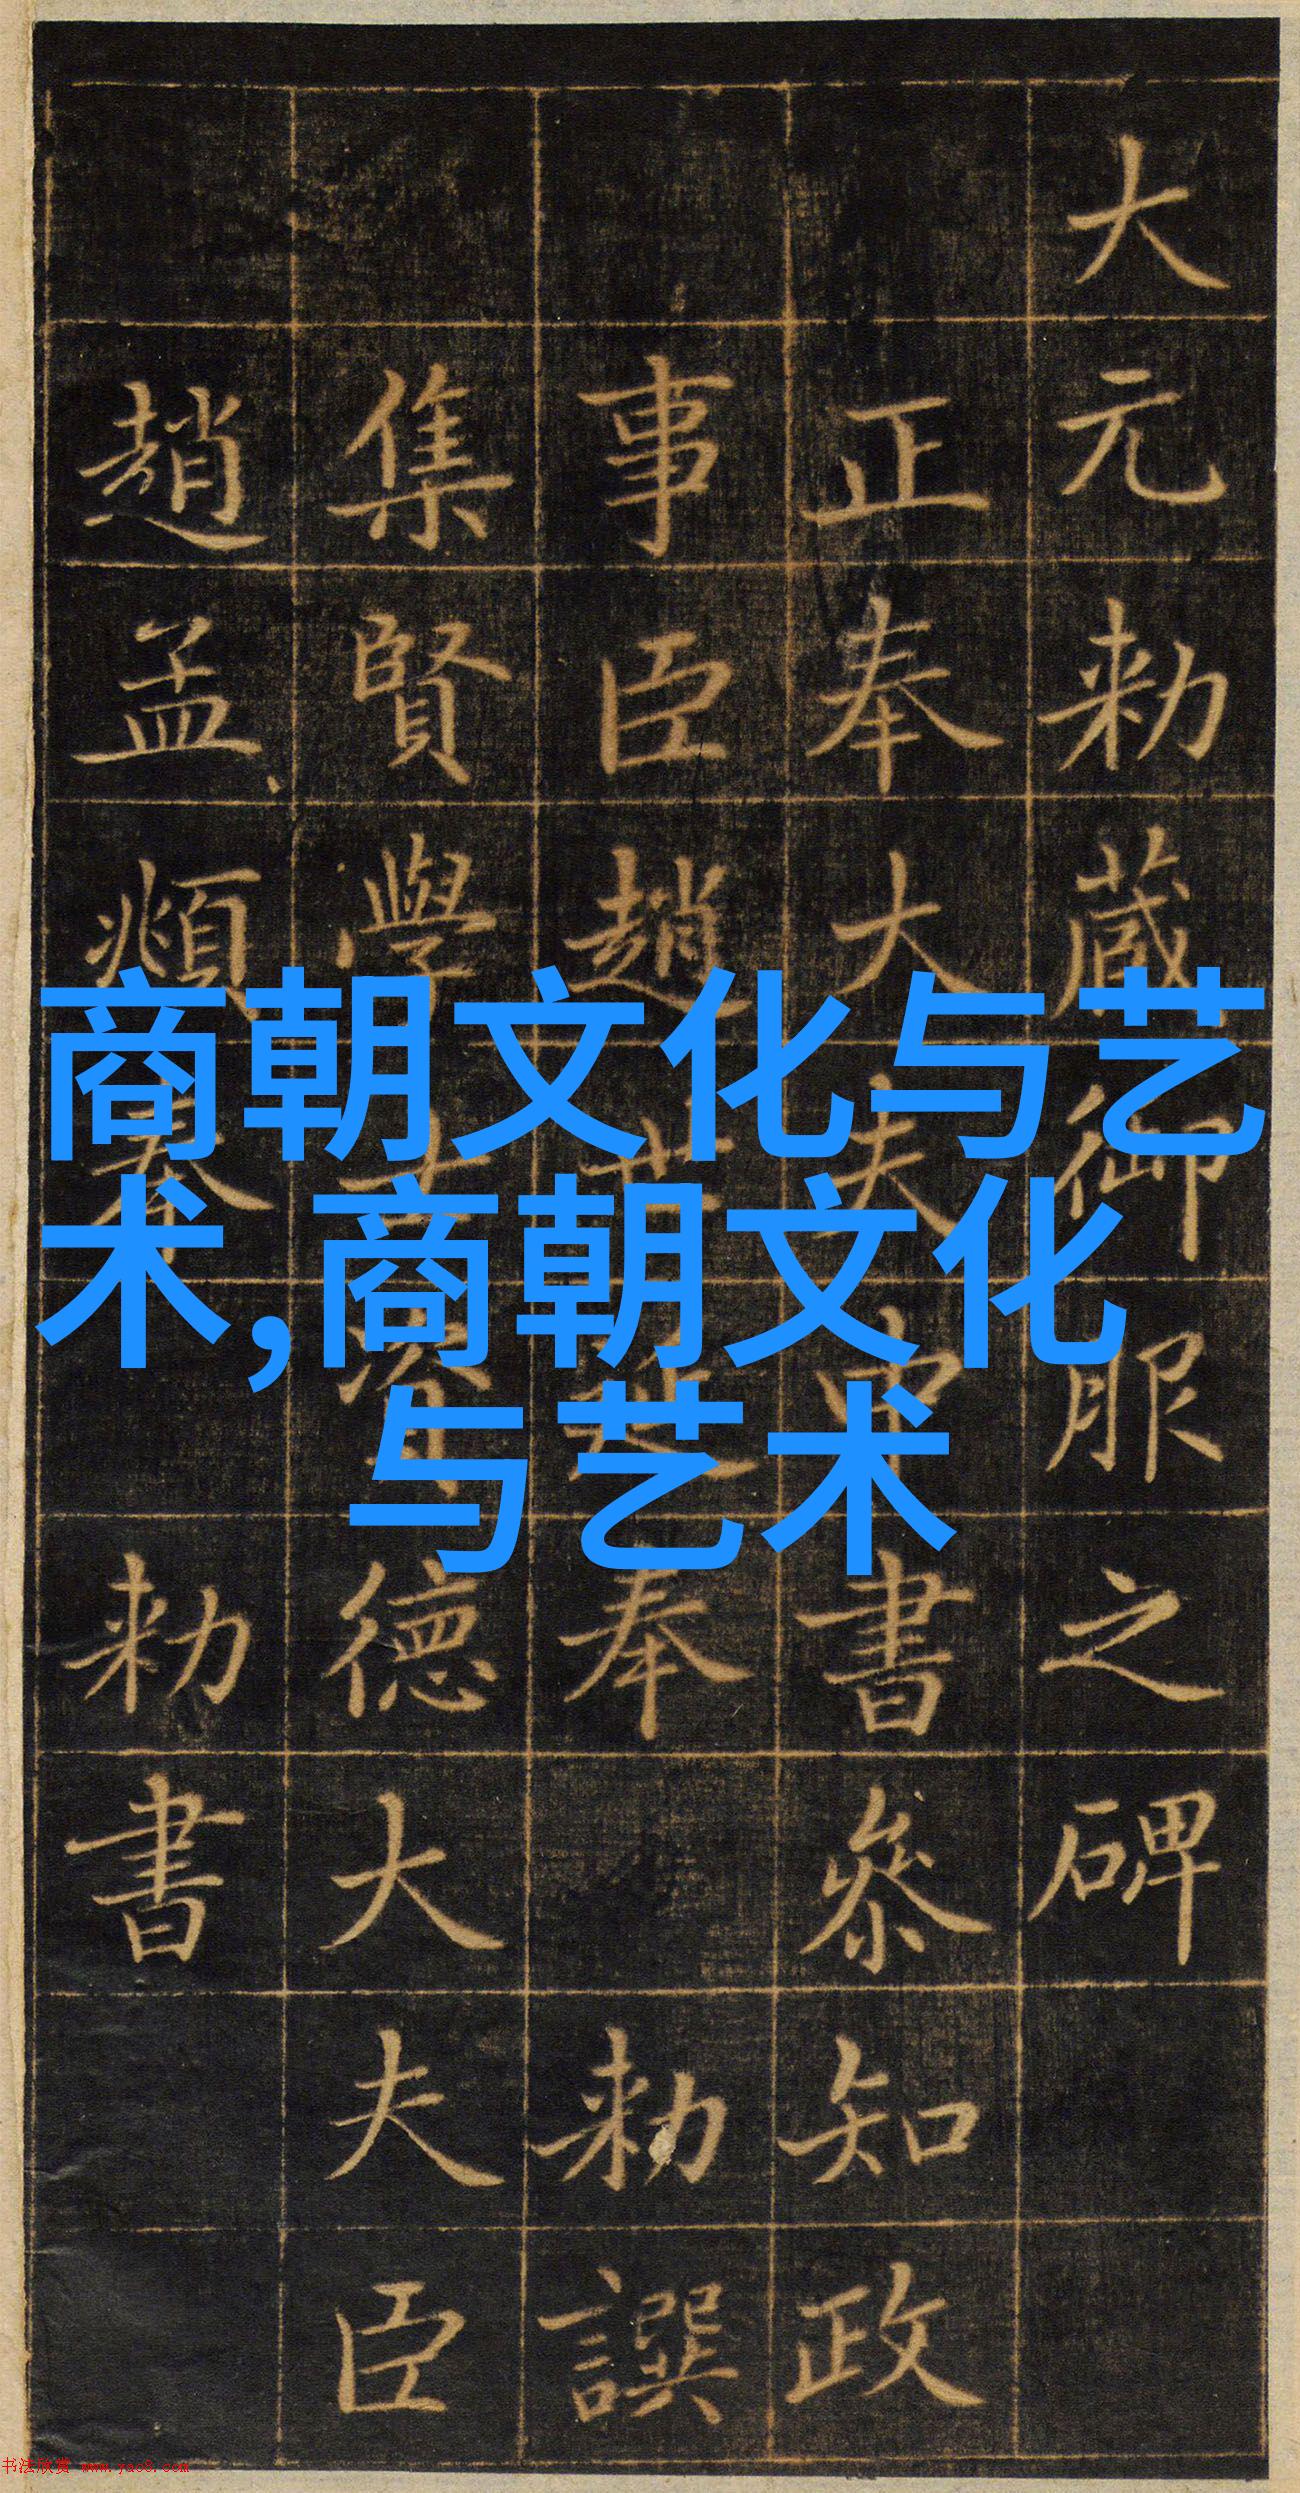 商朝文化与艺
术,商朝文化
与艺术
大元勑蔵御服之碑
正奉大夫中書叅知政
事臣趙世延奉勑譔
集賢學士資德大夫臣
趙孟頫奉勑書
书法欣赏 www.yac8.com